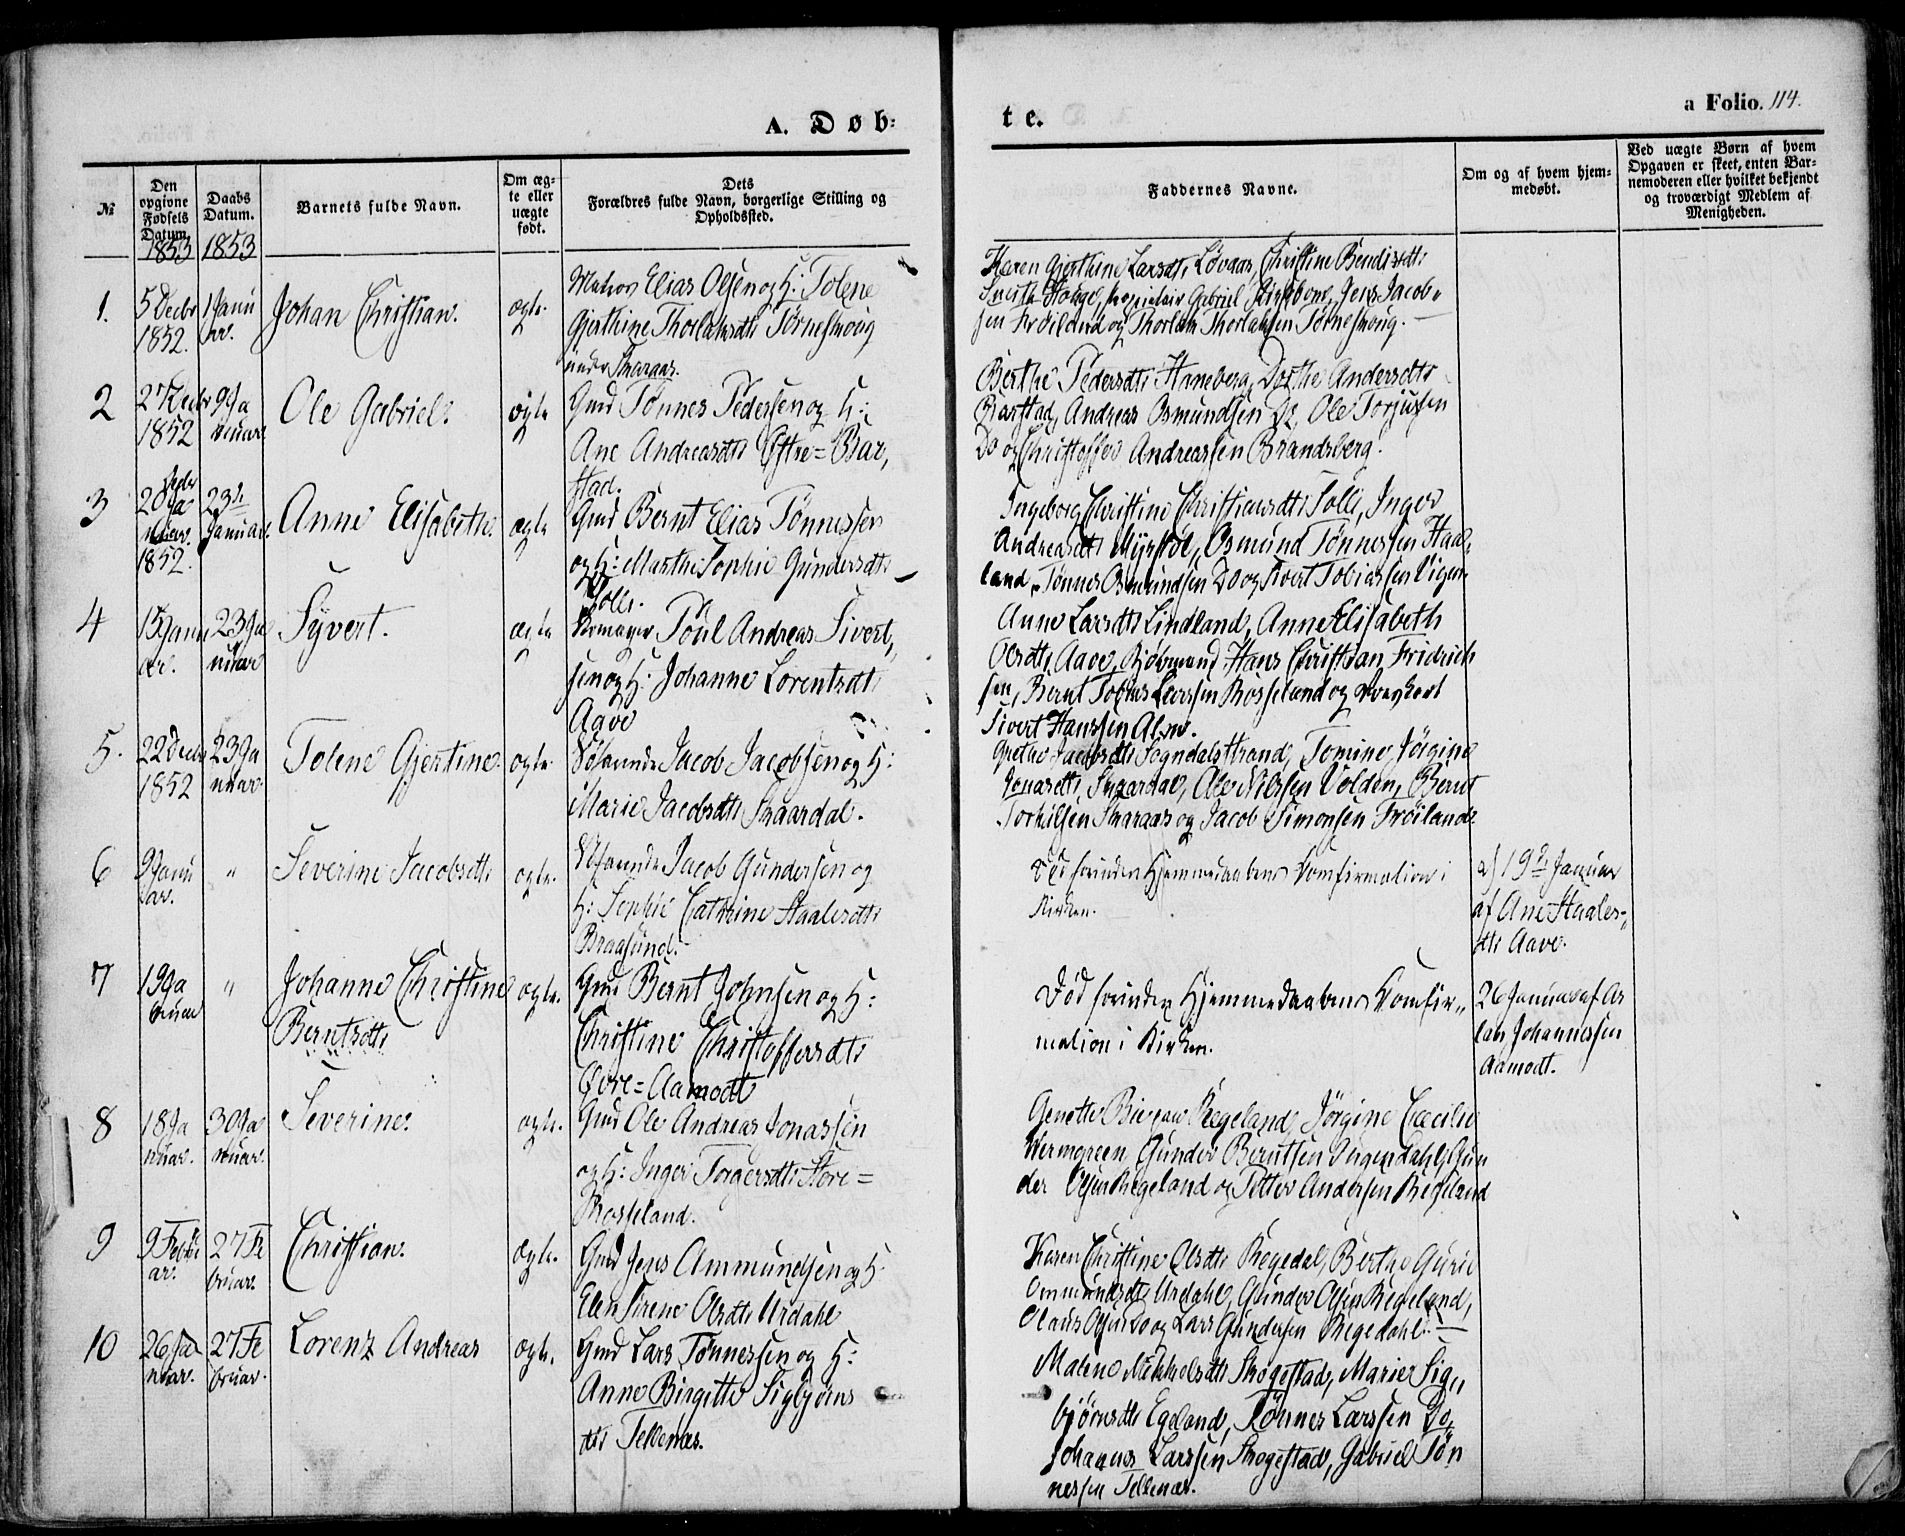 A. Døb-
te.
a Folio. 114.
№
Den opgivne Fødsels Datum.
1853
Daabs Datum.
1853
Barnets fulde Navn.
Om ægte eller uægte født.
Dets Forældres fulde Navn, borgerlige Stilling og Opholdssted.
Faddernes Navne.
Om og af hvem hjemmedøbt.
Ved uægte Børn af hvem Opgaven er skeet, enten Barnemoderen eller hvilket bekjendt og troværdigt Medlem af Menigheden.
1.
5 Decbr
1852.
1 Janu
ar.
Johan Christian.
ægte.
Matros Elias Olsen og H: Tolene
Gjerthine Thorlaksdtr Tørneshoug
under Skaraas.
Karen Gjerthine Larsdtr Løvaas, Christine Bendixdtr
Gabriel Kirkeboe, Jens Jacob„
sen Frøiland og Thorlak Thorlaksen Tørneshoug.
2
27 Decbr
1852
9 Ja
nuar
Ole Gabriel.
ægte
Gmd Tønnes Pedersen og H:
Ane Andreasdtr Østre=Bar„
stad.
Berthe Pedersdtr Haneberg, Dorthe Andersdtr
Barstad, Andreas Osmundsen Do, Ole Torjussen
Do og Christoffer Andreassen Brandsberg.
3
1852.
23de
Januar.
Anne Elisabeth.
ægte
Gmd Bernt Elias Tønnessen
og H: Marthe Sophie Gundersdtr
Solli.
Ingeborg Christine Christiansdtr Solli, Inger
Andreasdtr Myrstøl, Osmund Tønnessen Haa„
land, Tønnes Osmundsen Do og Sivert Tobiassen Vigen
4
15 Janu
ar.
23 Ja
nuar
Syvert.
ægte
Poul Andreas Sivert„
sen og H: Johanne Lorentsdtr
Aave
Anne Larsdtr Lindland, Anne Elisabeth
Olsdtr Aave, Hans Christian Fridrich
sen, Bernt Tobias Larsen Rosseland og
Sivert Hanssen
5.
22 Decbr
1852
23 Ja
nuar
Tolene Gjertine
ægte.
Søfarende Jacob Jacobsen og H:
Marie Jacobsdtr Skaardal.
Grethe Jacobsdtr Sogndalstrand, Tomine Jørgine
Jonasdtr Skaardal, Ole Nilsen Volden, Bernt
Torkilsen Skaraas og Jacob Simonsen Frøiland
6
9 Janu
ar.
„
Severine Jacobsdtr
ægte.
Søfarende Jacob Gundersen og
H: Sophie Cathrine Staalesdtr
Bragsund.
Død forinden Hjemmedaabens Komfirmation i
Kirken.
19de Januar
af Ane Staales„
dtr Aave.
7
19 Ja
nuar
„
Johanne Christine
Berntsdtr
ægte.
Gmd Bernt Johnsen og H:
Christine Christoffersdtr
Øvre=Aamodt
Død forinden Hjemmedaabens Komfir„
mation i Kirken.
26 Januar af As
lak Johannessen
Aamodt.
8
18 Ja
nuar.
30 Ja
nuar.
Severine.
ægte.
Gmd Ole Andreas Jonassen
og H: Inger Torgersdtr Store=
Rosseland.
Regeland, Jørgine Cæcilie
Wermgreen, Gunder Berntsen Ingendahl, Gun
der Olsen Regeland og Petter Andersen Regeland
9
9 Febru
ar.
27 Fe
bruar.
Christian.
ægte.
Gmd Jens Ammundsen og H.
Elen Sirene Olsdtr Urdahl
Karen Christine Olsdtr Regedal, Berthe Gurie
Ommundsdtr Urdahl, Gunder Olsen Regeland,
Olaus Olsen Do og Lars Gundersen Regedahl.
10
26 Ja
nuar.
27 Fe
bruar.
Lorenz Andreas
ægte.
Gmd Lars Tønnessen og H:
Anne Birgitte Sigbjørns
dtr Tellenæs.
Malene Mikkelsdtr Skogestad, Marie Sig„
bjørnsdtr Egeland, Tønnes Larssen Do,
Johannes Larssen Skogestad, Gabriel Tøn
nessen Tellenæs.